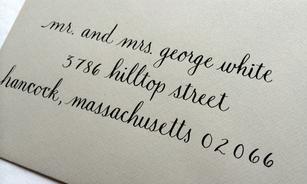 mr. and mrs. george white
3786 hilltop street
hancock, massachusetts 02066